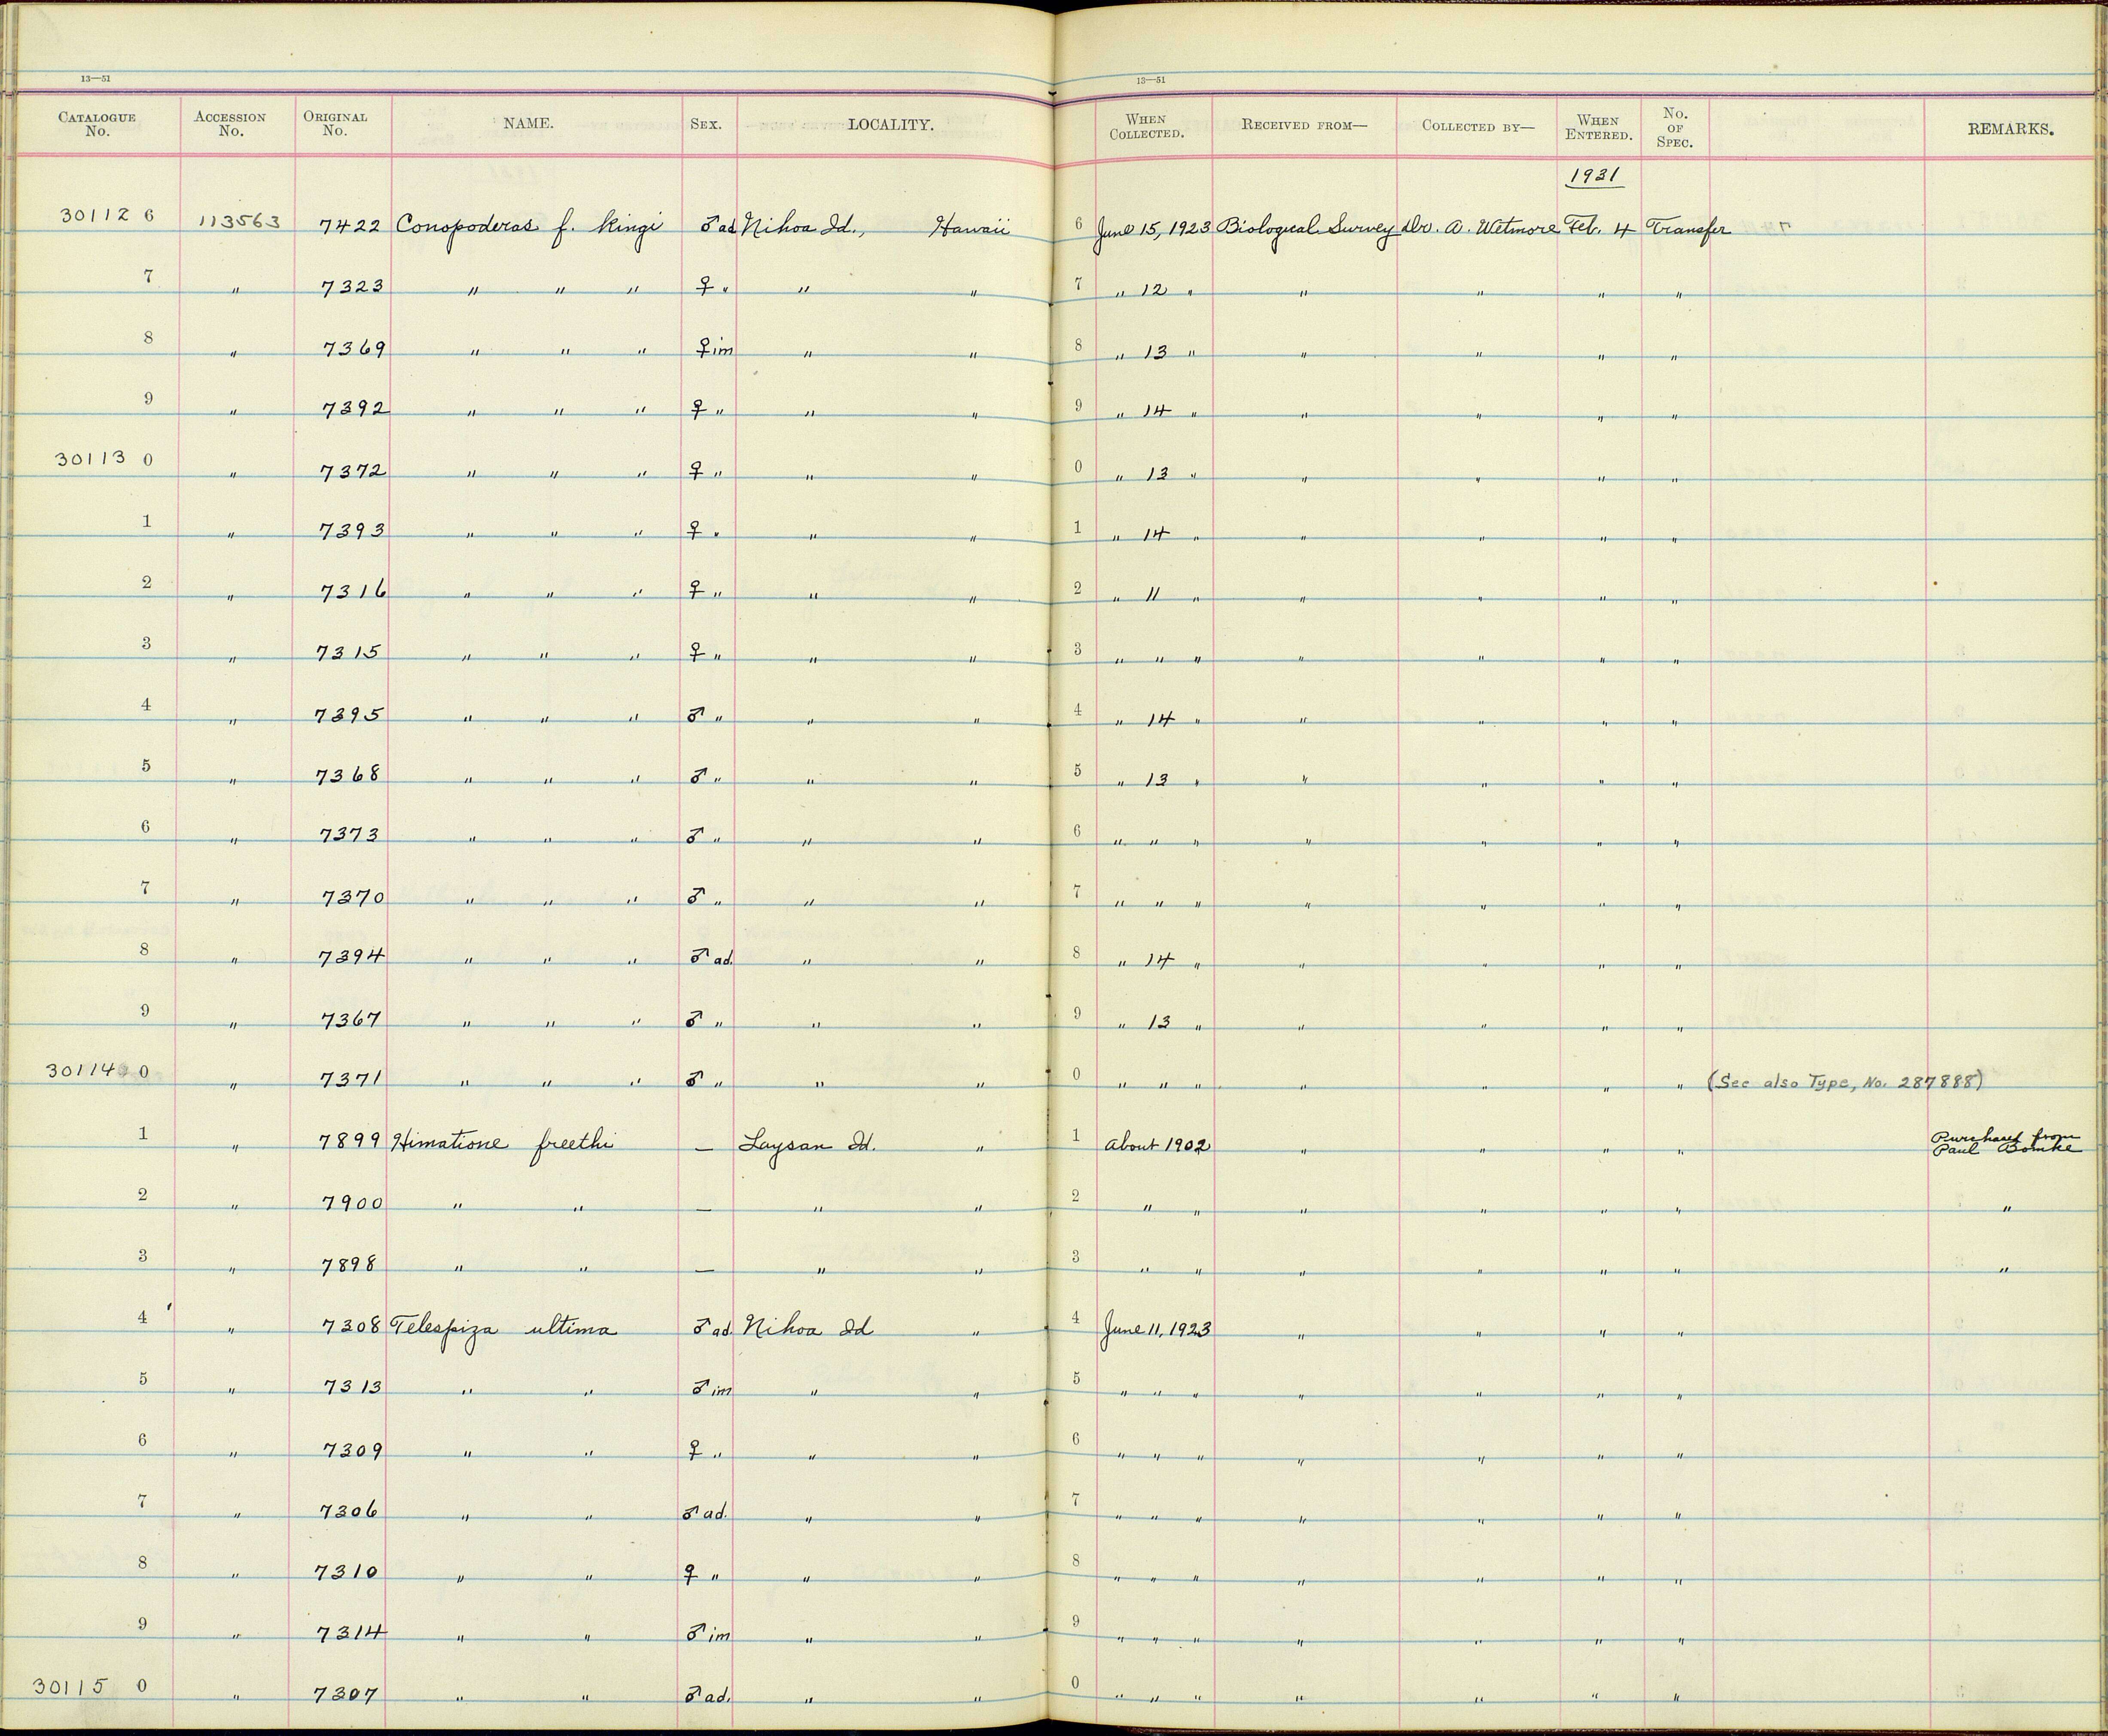 13—51 13—51
CATALOGUE No. ACCESSION No. ORIGINAL No. NAME. SEX. LOCALITY. WHEN COLLECTED. RECEIVED FROM— COLLECTED BY— WHEN ENTERED. No. OF SPEC. REMARKS.
1931
30112 6 113563 7422 Conopoderas f. kingi ♂ ad Nihoa Id., Hawaii 6 June 15, 1923 Biological Survey Dr. A. Wetmore Feb. 4 Transfer
7 " 7323 " " " ♀ " " " 7 " 12 " " " " "
8 " 7369 " " " ♀ im " " 8 " 13 " " " " "
9 " 7392 " " " ♀ " " " 9 " 14 " " " " "
30113 0 " 7372 " " " ♀ " " " 0 " 13 " " " " "
1 " 7393 " " " ♀ " " " 1 " 14 " " " " "
2 " 7316 " " " ♀ " " " 2 " 11 " " " " "
3 " 7315 " " " ♀ " " " 3 " " " " " " "
4 " 7395 " " " ♂ " " " 4 " 14 " " " " "
5 " 7368 " " " ♂ " " " 5 " 13 " " " " "
6 " 7373 " " " ♂ " " " 6 " " " " " " "
7 " 7370 " " " ♂ " " " 7 " " " " " " "
8 " 7394 " " " ♂ ad. " " 8 " 14 " " " " "
9 " 7367 " " " ♂ " " " 9 " 13 " " " " "
30114 0 " 7371 " " " ♂ " " " 0 " " " " " " " (See also Type, No. 287888)
1 " 7899 Himatione freethi — Laysan Id. " 1 About 1902 " " " " Purchased from Paul Bomke
2 " 7900 " " — " " 2 " " " " " " "
3 " 7898 " " — " " 3 " " " " " " "
4 " 7308 Telespiza ultima ♂ ad. Nihoa Id " 4 June 11, 1923 " " " "
5 " 7313 " " ♂ im " " 5 " " " " " " "
6 " 7309 " " ♀ " " " 6 " " " " " " "
7 " 7306 " " ♂ ad. " " 7 " " " " " " "
8 " 7310 " " ♀ " " " 8 " " " " " " "
9 " 7314 " " ♂ im " " 9 " " " " " " "
30115 0 " 7307 " " ♂ ad. " " 0 " " " " " " "